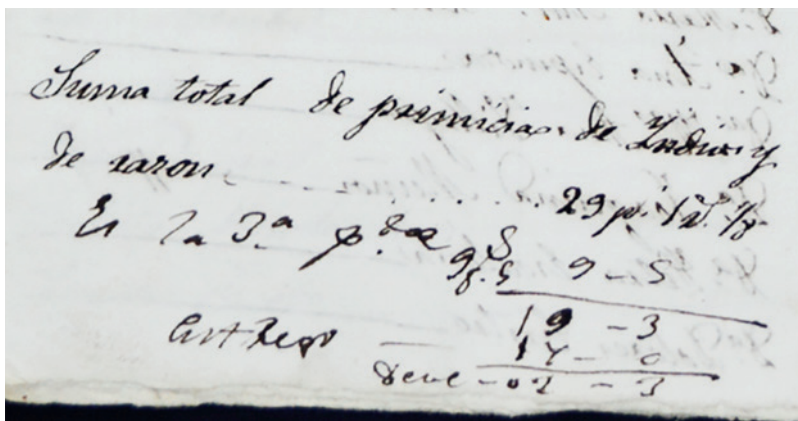 Suma total de primicias de Yndios y
de razon . . . . . 29 p.s 1 r.l 1/2
Es la 3.a p.te 9 - 5
19 - 3
Entrego 17 - 0
Deve - 02 - 3